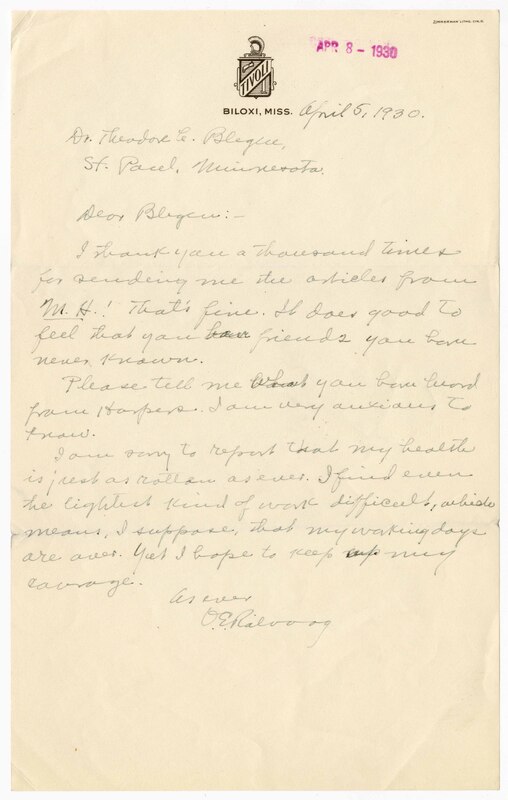 ZIMMERMAN LITHO. CIN. O.
APR 8 - 1930
TIVOLI
BILOXI, MISS. April 5, 1930.
Dr. Theodore C. Blegen,
St. Paul, Minnesota.
Dear Blegen:-
I thank you a thousand times
for sending me the articles from
M. H.! That's fine. It does good to
feel that you have friends you have
never known.
Please tell me what you have heard
from Harpers. I am very anxious to
know.
I am sorry to report that my health
is just as rotten as ever. I find even
the lightest kind of work difficult, which
means, I suppose, that my working days
are over. Yet I hope to keep up my
courage.
As ever
O.E. Rölvaag